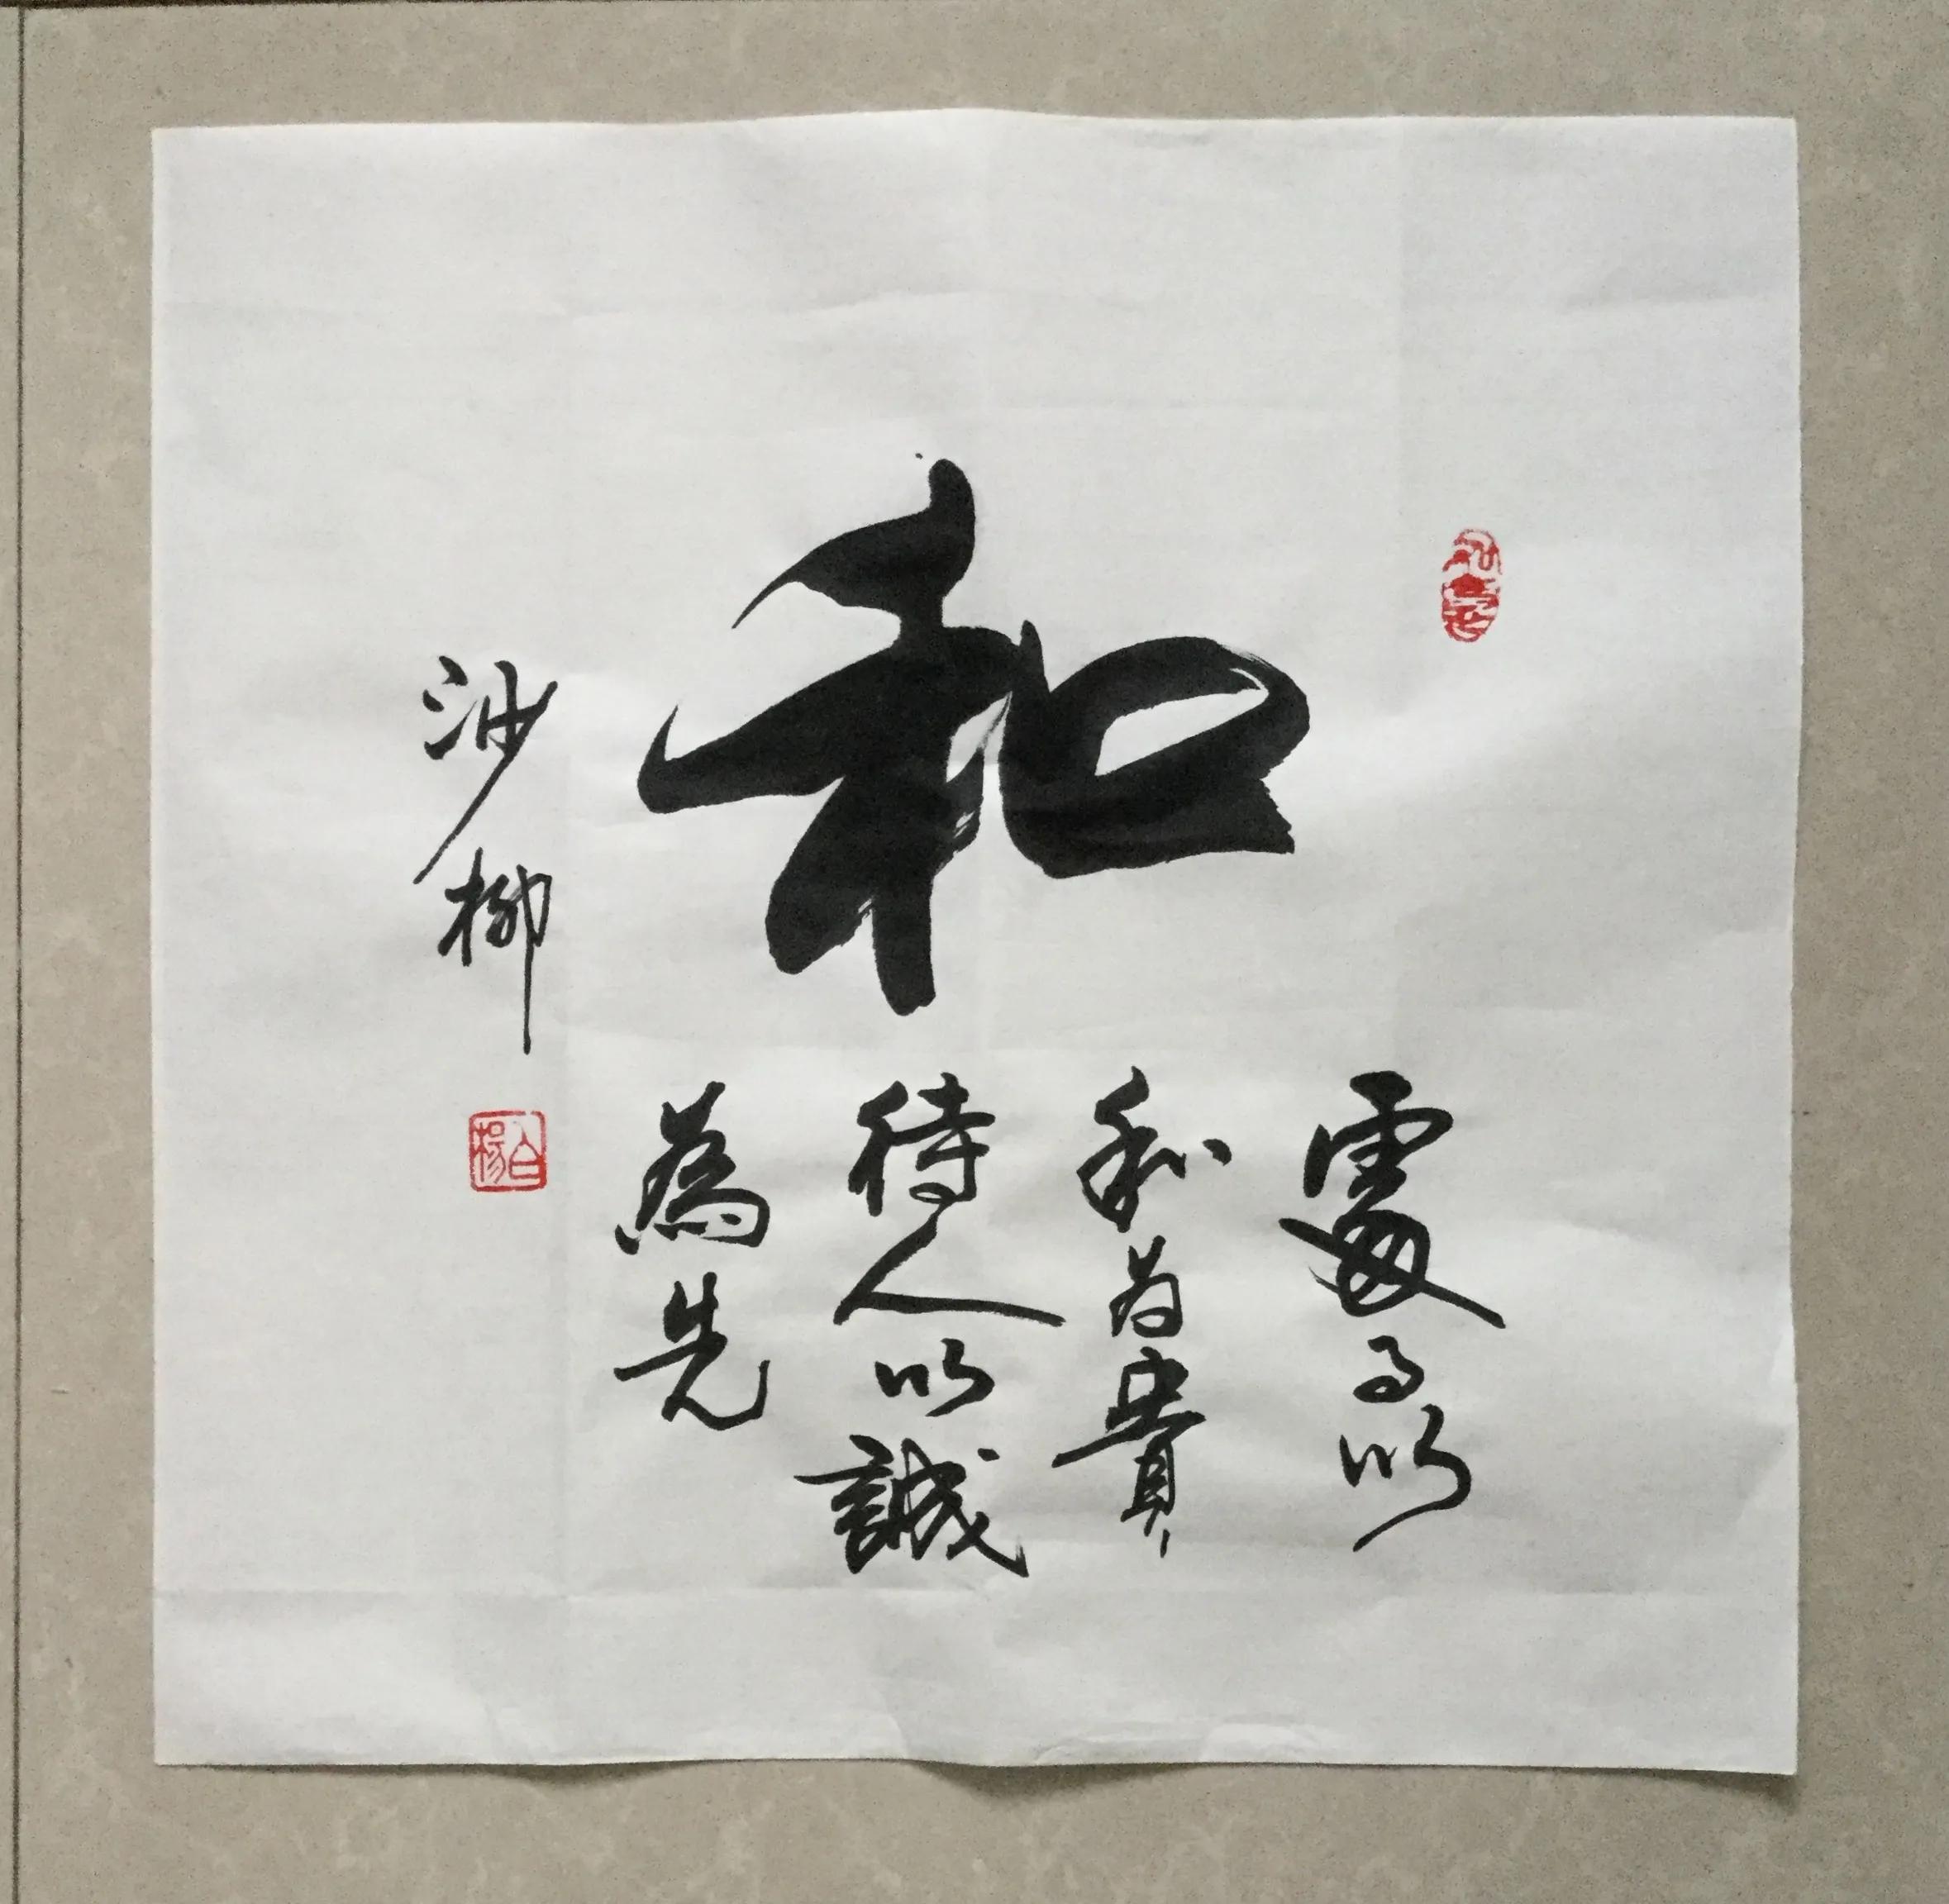 和
處事以
和为貴
待人以誠
為先
沙柳
白楊